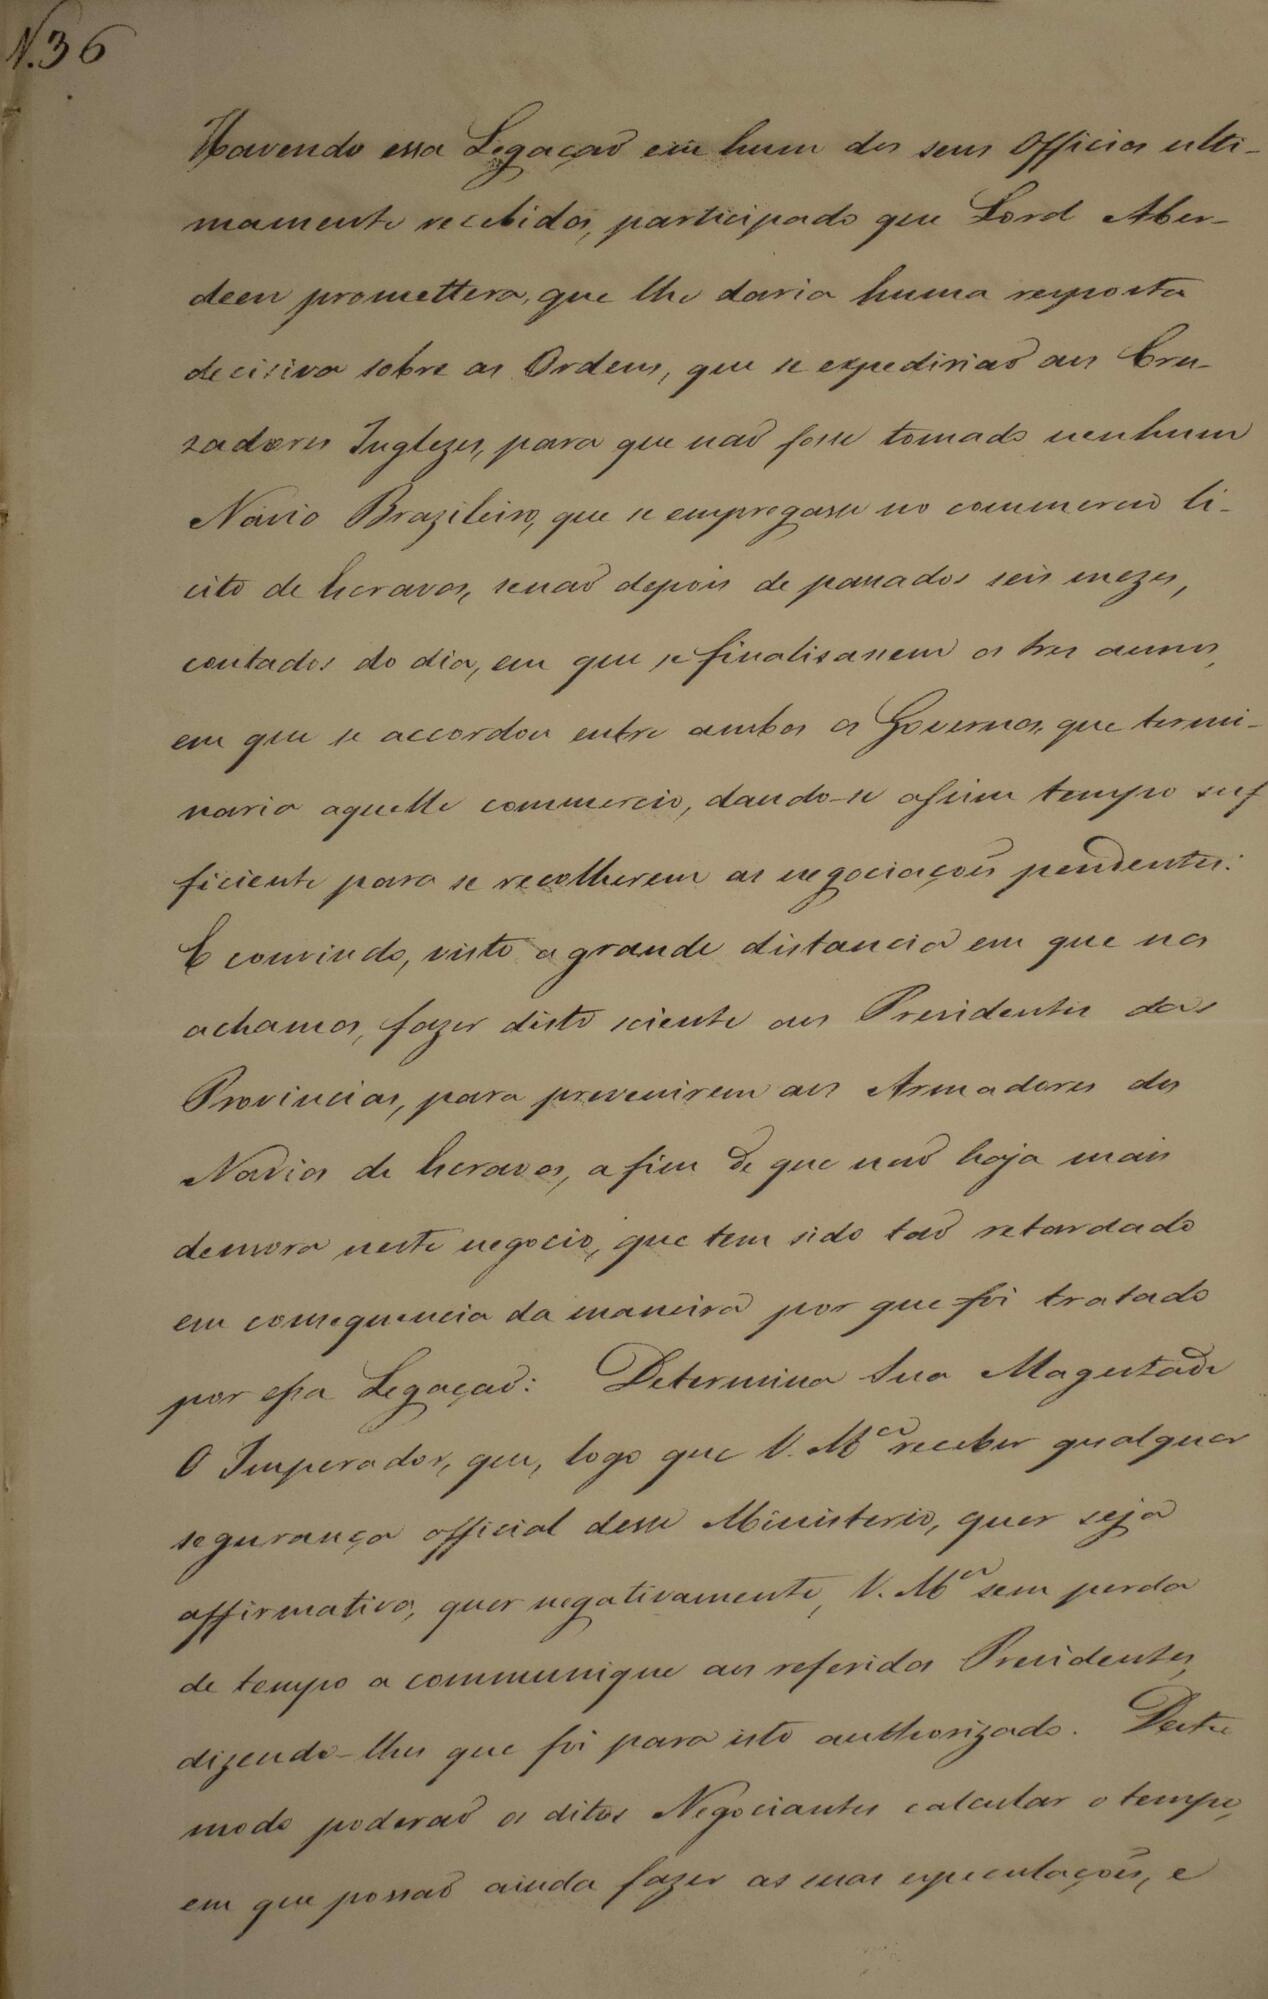 N. 36
Havendo essa Legação em hum dos seus Officios ulti-
mamente recebidos, participado que Lord Aber-
deen promettera, que lhe daria huma resposta
decisiva sobre as Ordens, que se expedirião aos Cru-
zadores Inglezes, para que não fosse tomado nenhum
Navio Brazileiro, que se empregasse no commercio li-
cito de Escravos, senão depois de passados seis mezes,
contados do dia, em que se finalisassem os tres annos,
em que se accordou entre ambos os Governos, que termi-
naria aquelle commercio, dando-se assim tempo suf
ficiente para se recolherem as negociações pendentes:
E convindo, visto a grande distancia em que nos
achamos, fazer disto sciente aos Presidentes das
Provincias, para prevenirem aos Armadores dos
Navios de Escravos, a fim de que não haja mais
demora neste negocio, que tem sido tão retardado
em consequencia da maneira por que foi tratado
por essa Legação: Determina Sua Magestade
O Imperador, que, logo que V. Mce receber qualquer
segurança official desse Ministerio, quer seja
affirmativa, quer negativamente, V. Mce sem perda
de tempo a communique aos referidos Presidentes,
dizendo-lhes que foi para isto authorizado. Deste
modo poderão os ditos Negociantes calcular o tempo,
em que possão ainda fazer as suas especulações, e